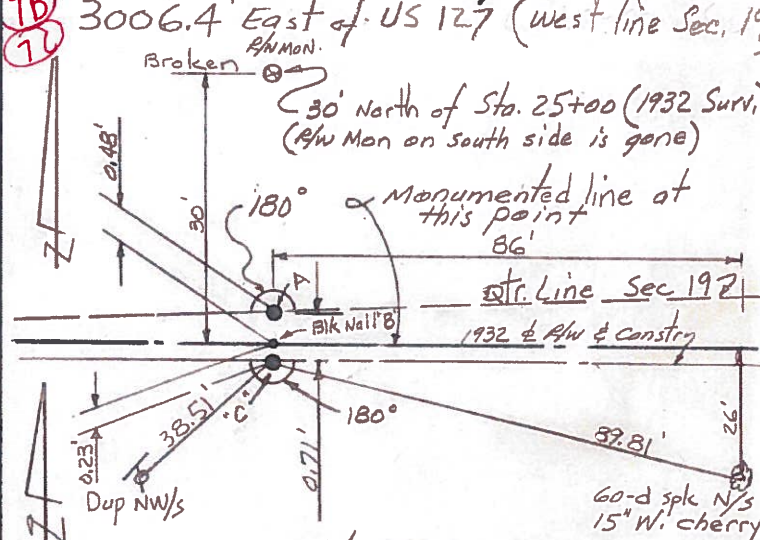 7D
7C
3006.4' East of US 127 (West line Sec. 19
R/W MON.
Broken
30' North of Sta. 25+00 (1932 Surv
(R/W Mon on south side is gone)
0.48'
30'
180°
Monumented line at
this point
86'
A
Qtr. Line Sec 19
Blk Nail "B"
1932 ₵ R/W & Constrn
N
0.23'
38.51'
"C"
180°
0.71'
89.81'
26'
Dup NW/s
60-d spk N/s
15" W. cherry
N